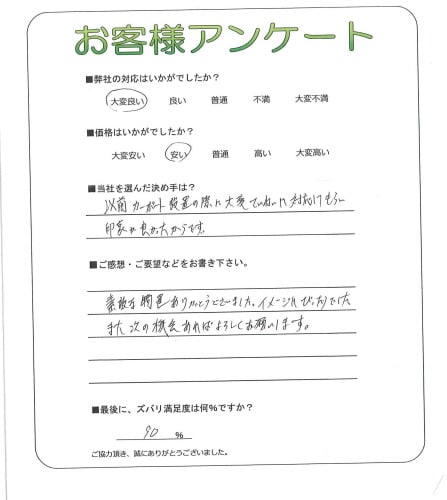 お客様アンケート
■弊社の対応はいかがでしたか？
大変良い 良い 普通 不満 大変不満
■価格はいかがでしたか？
大変安い 安い 普通 高い 大変高い
■当社を選んだ決め手は？
以前カーポート設置の際に大変ていねいに対応けもらい
印象が良かったからです。
■ご感想・ご要望などをお書き下さい。
素敵な ありがとうございました。イメージぴったりでした
また次の機会あればよろしくお願いします。
■最後に、ズバリ満足度は何%ですか？
90 %
ご協力頂き、誠にありがとうございました。